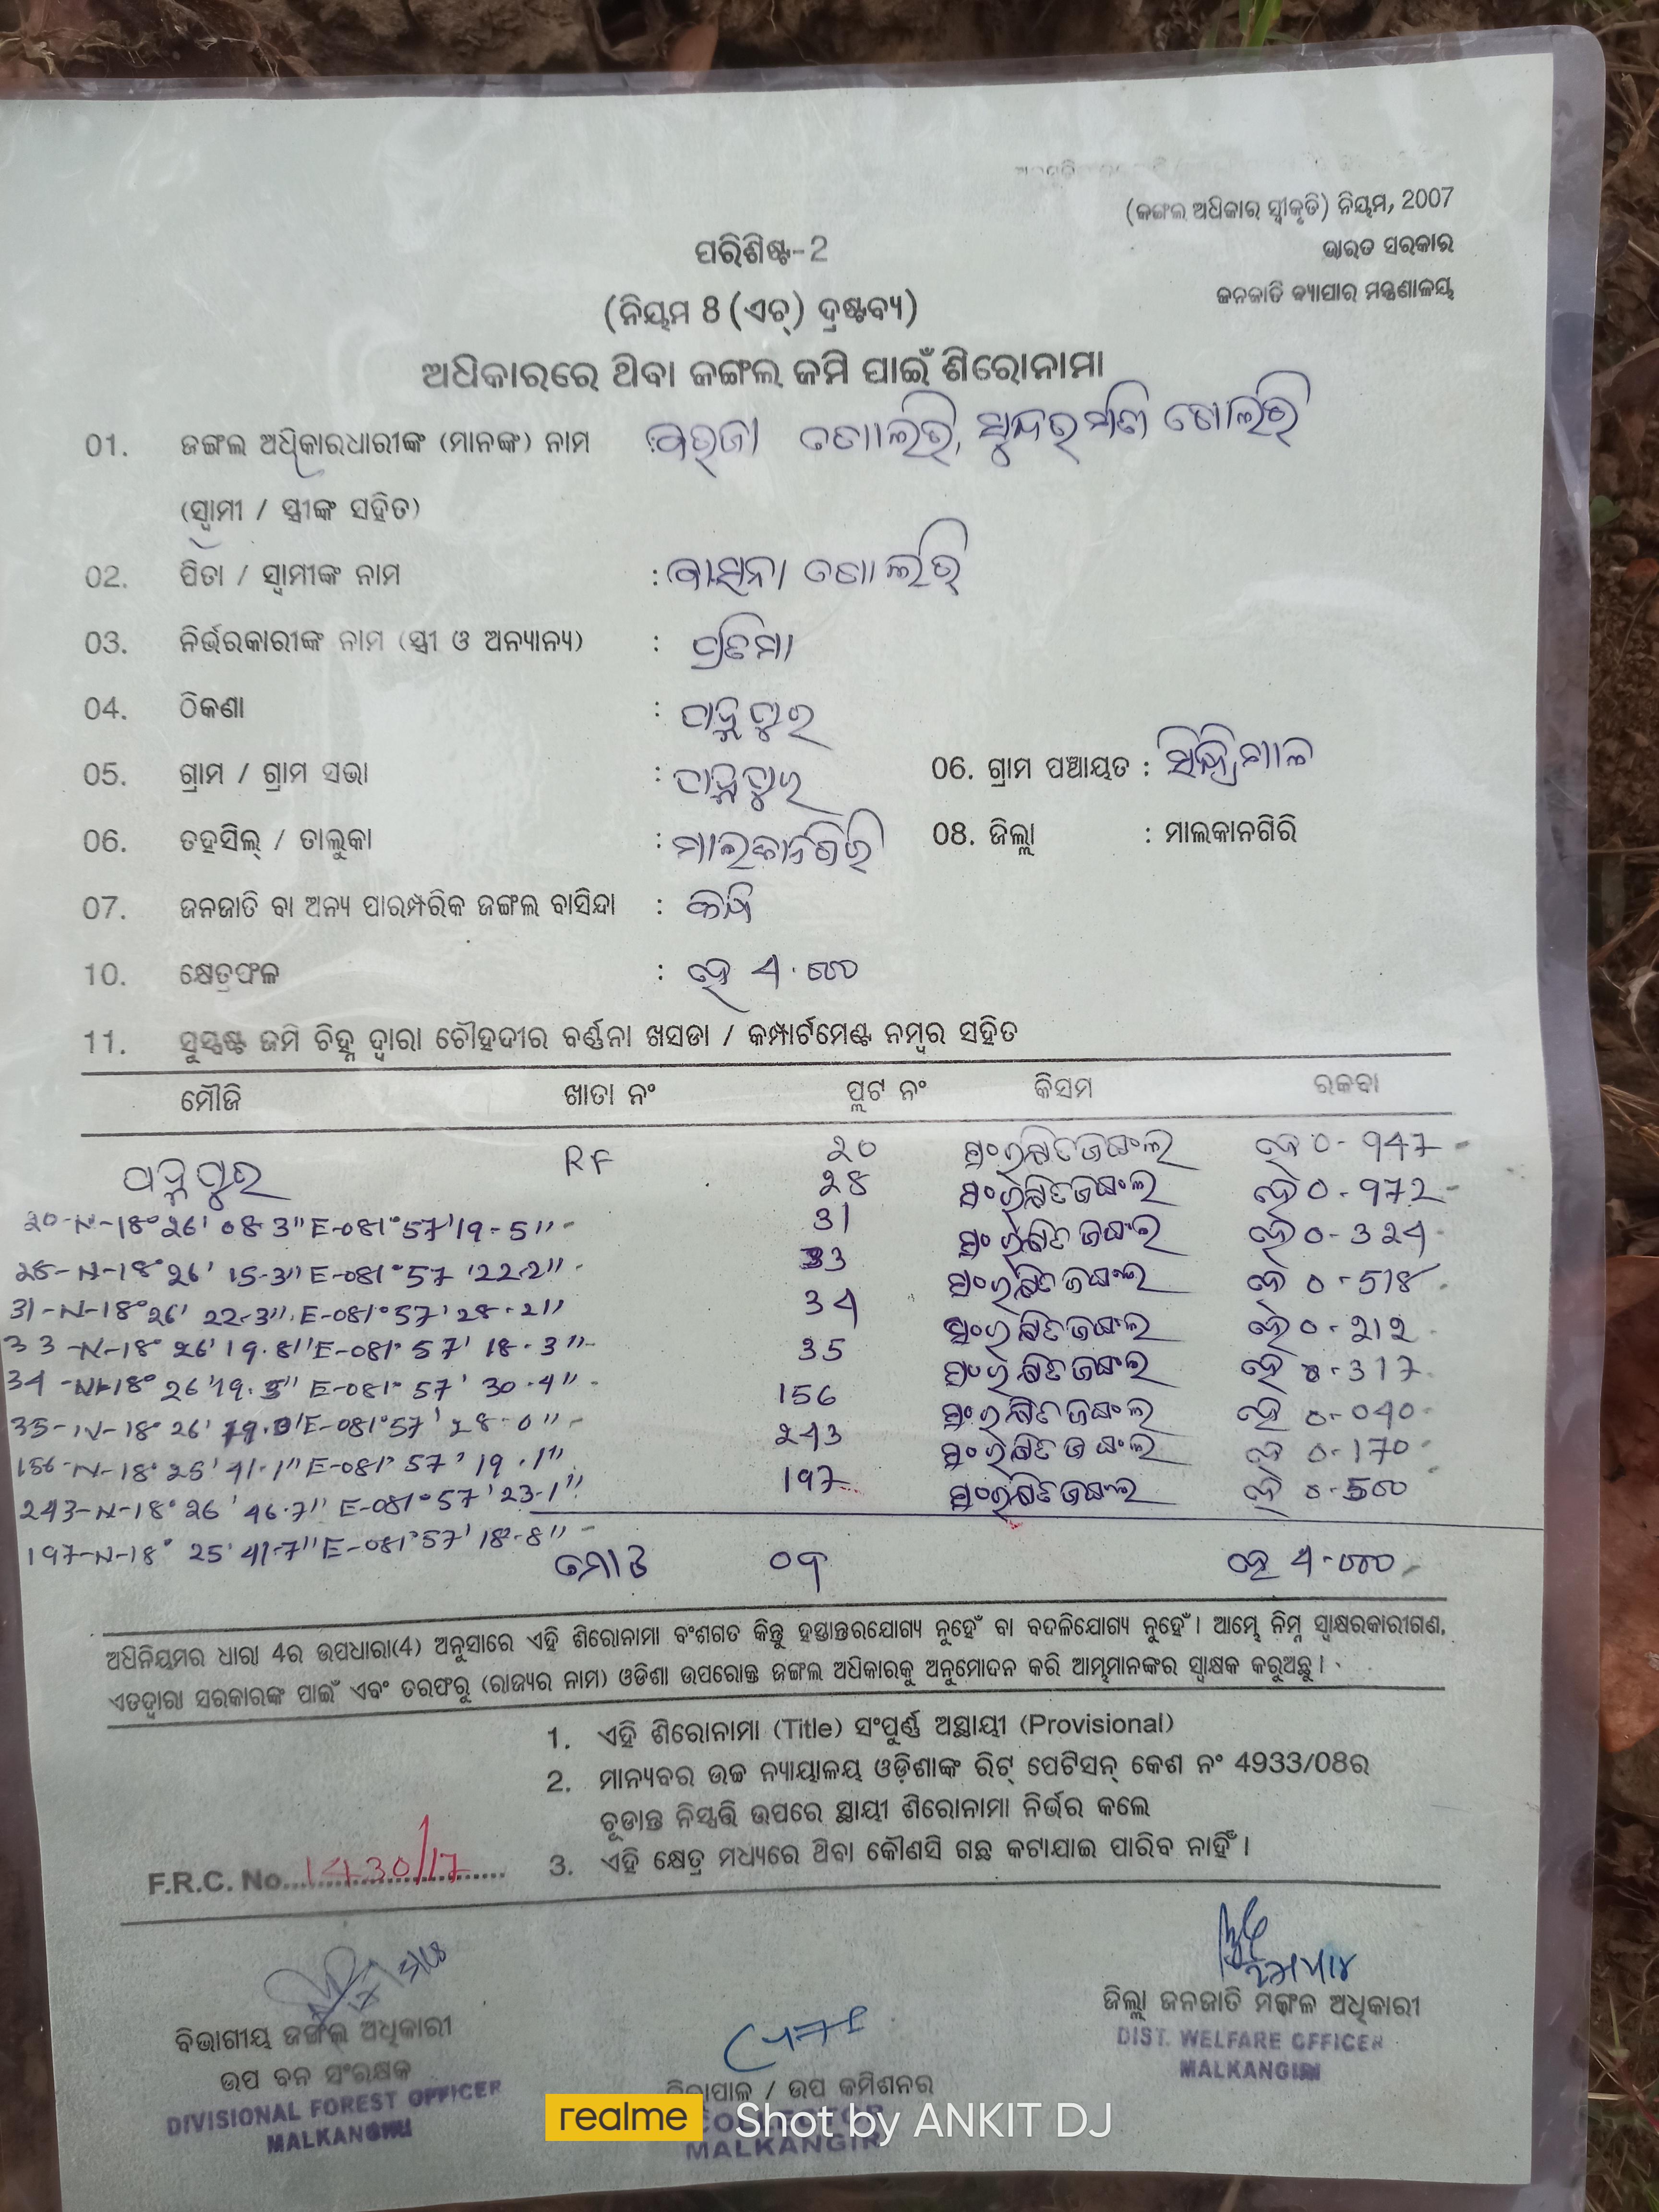 (ଜଙ୍ଗଲ ଅଧିକାର ସ୍ୱୀକୃତି) ନିୟମ, 2007
ଭାରତ ସରକାର
ଜନଜାତି ବ୍ୟାପାର ମନ୍ତ୍ରଣାଳୟ
ପରିଶିଷ୍ଟ-2
(ନିୟମ 8 (ଏଚ୍) ଦ୍ରଷ୍ଟବ୍ୟ)
ଅଧିକାରରେ ଥିବା ଜଙ୍ଗଲ ଜମି ପାଇଁ ଶିରୋନାମା
01. ଜଙ୍ଗଲ ଅଧିକାରଧାରୀଙ୍କ (ମାନଙ୍କ) ନାମ :
(ସ୍ୱାମୀ / ସ୍ତ୍ରୀଙ୍କ ସହିତ)
02. ପିତା / ସ୍ୱାମୀଙ୍କ ନାମ :
03. ନିର୍ଭରକାରୀଙ୍କ ନାମ (ସ୍ତ୍ରୀ ଓ ଅନ୍ୟାନ୍ୟ) : ପ୍ରତିମା
04. ଠିକଣା :
05. ଗ୍ରାମ / ଗ୍ରାମ ସଭା : 06. ଗ୍ରାମ ପଞ୍ଚାୟତ :
06. ତହସିଲ୍ / ତାଲୁକା : ମାଲକାନଗିରି 08. ଜିଲ୍ଲା : ମାଲକାନଗିରି
07. ଜନଜାତି ବା ଅନ୍ୟ ପାରମ୍ପରିକ ଜଙ୍ଗଲ ବାସିନ୍ଦା :
10. କ୍ଷେତ୍ରଫଳ : ହେ ୪.୦୦୦
11. ସୁସ୍ପଷ୍ଟ ଜମି ଚିହ୍ନ ଦ୍ୱାରା ଚୌହଦୀର ବର୍ଣ୍ଣନା ଖସଡା / କମ୍ପାର୍ଟମେଣ୍ଟ ନମ୍ବର ସହିତ
ମୌଜି ଖାତା ନଂ ପ୍ଲଟ ନଂ କିସମ ରକବା
RF 20 ସଂରକ୍ଷିତ ଜଙ୍ଗଲ ହେ 0-947
28 ସଂରକ୍ଷିତ ଜଙ୍ଗଲ ହେ 0-972
20-N-18°26' 08.3" E-081°57'19.5"
31 ସଂରକ୍ଷିତ ଜଙ୍ଗଲ ହେ 0-324
28-N-18°26' 15.3" E-081°57'22.2"
33 ସଂରକ୍ଷିତ ଜଙ୍ଗଲ ହେ 0-518
31-N-18°26' 22.3" E-081°57'28.2"
34 ସଂରକ୍ଷିତ ଜଙ୍ଗଲ ହେ 0-212
33-N-18°26'19.8" E-081°57'18.3"
35 ସଂରକ୍ଷିତ ଜଙ୍ଗଲ ହେ 0-317
34-N-18°26'19.5" E-081°57'30.4"
156 ସଂରକ୍ଷିତ ଜଙ୍ଗଲ ହେ 0-040
35-N-18°26' E-081°57'28.0"
243 ସଂରକ୍ଷିତ ଜଙ୍ଗଲ ହେ 0-170
156-N-18°25'41.1" E-081°57'19.1"
197 ସଂରକ୍ଷିତ ଜଙ୍ଗଲ ହେ 0-500
243-N-18°26'46.7" E-081°57'23.1"
197-N-18°25'41.7" E-081°57'18.8"
ମୋଟ ୦୯ ହେ ୪-୦୦୦
ଅଧିନିୟମର ଧାରା 4ର ଉପଧାରା(4) ଅନୁସାରେ ଏହି ଶିରୋନାମା ବଂଶଗତ କିନ୍ତୁ ହସ୍ତାନ୍ତରଯୋଗ୍ୟ ନୁହେଁ ବା ବଦଳିଯୋଗ୍ୟ ନୁହେଁ । ଆମ୍ଭେ ନିମ୍ନ ସ୍ୱାକ୍ଷରକାରୀଗଣ,
ଏତଦ୍ୱାରା ସରକାରଙ୍କ ପାଇଁ ଏବଂ ତରଫରୁ (ରାଜ୍ୟର ନାମ) ଓଡିଶା ଉପରୋକ୍ତ ଜଙ୍ଗଲ ଅଧିକାରକୁ ଅନୁମୋଦନ କରି ଆମ୍ଭମାନଙ୍କର ସ୍ୱାକ୍ଷକ କରୁଅଛୁ ।
1. ଏହି ଶିରୋନାମା (Title) ସଂପୁର୍ଣ୍ଣ ଅସ୍ଥାୟୀ (Provisional)
2. ମାନ୍ୟବର ଉଚ୍ଚ ନ୍ୟାୟାଳୟ ଓଡ଼ିଶାଙ୍କ ରିଟ୍ ପେଟିସନ୍ କେଶ ନଂ 4933/08ର
ଚୂଡାନ୍ତ ନିସ୍ପତ୍ତି ଉପରେ ସ୍ଥାୟୀ ଶିରୋନାମା ନିର୍ଭର କଲେ
3. ଏହି କ୍ଷେତ୍ର ମଧ୍ୟରେ ଥିବା କୌଣସି ଗଛ କଟାଯାଇ ପାରିବ ନାହିଁ ।
F.R.C. No. 1430/17
ବିଭାଗୀୟ ଜଙ୍ଗଲ ଅଧିକାରୀ
ଉପ ବନ ସଂରକ୍ଷକ
DIVISIONAL FOREST OFFICER
MALKANGIRI
ଜିଲ୍ଲାପାଳ / ଉପ କମିଶନର
COLLECTOR
MALKANGIRI
ଜିଲ୍ଲା ଜନଜାତି ମଙ୍ଗଳ ଅଧିକାରୀ
DIST. WELFARE OFFICER
MALKANGIRI
realme Shot by ANKIT DJ